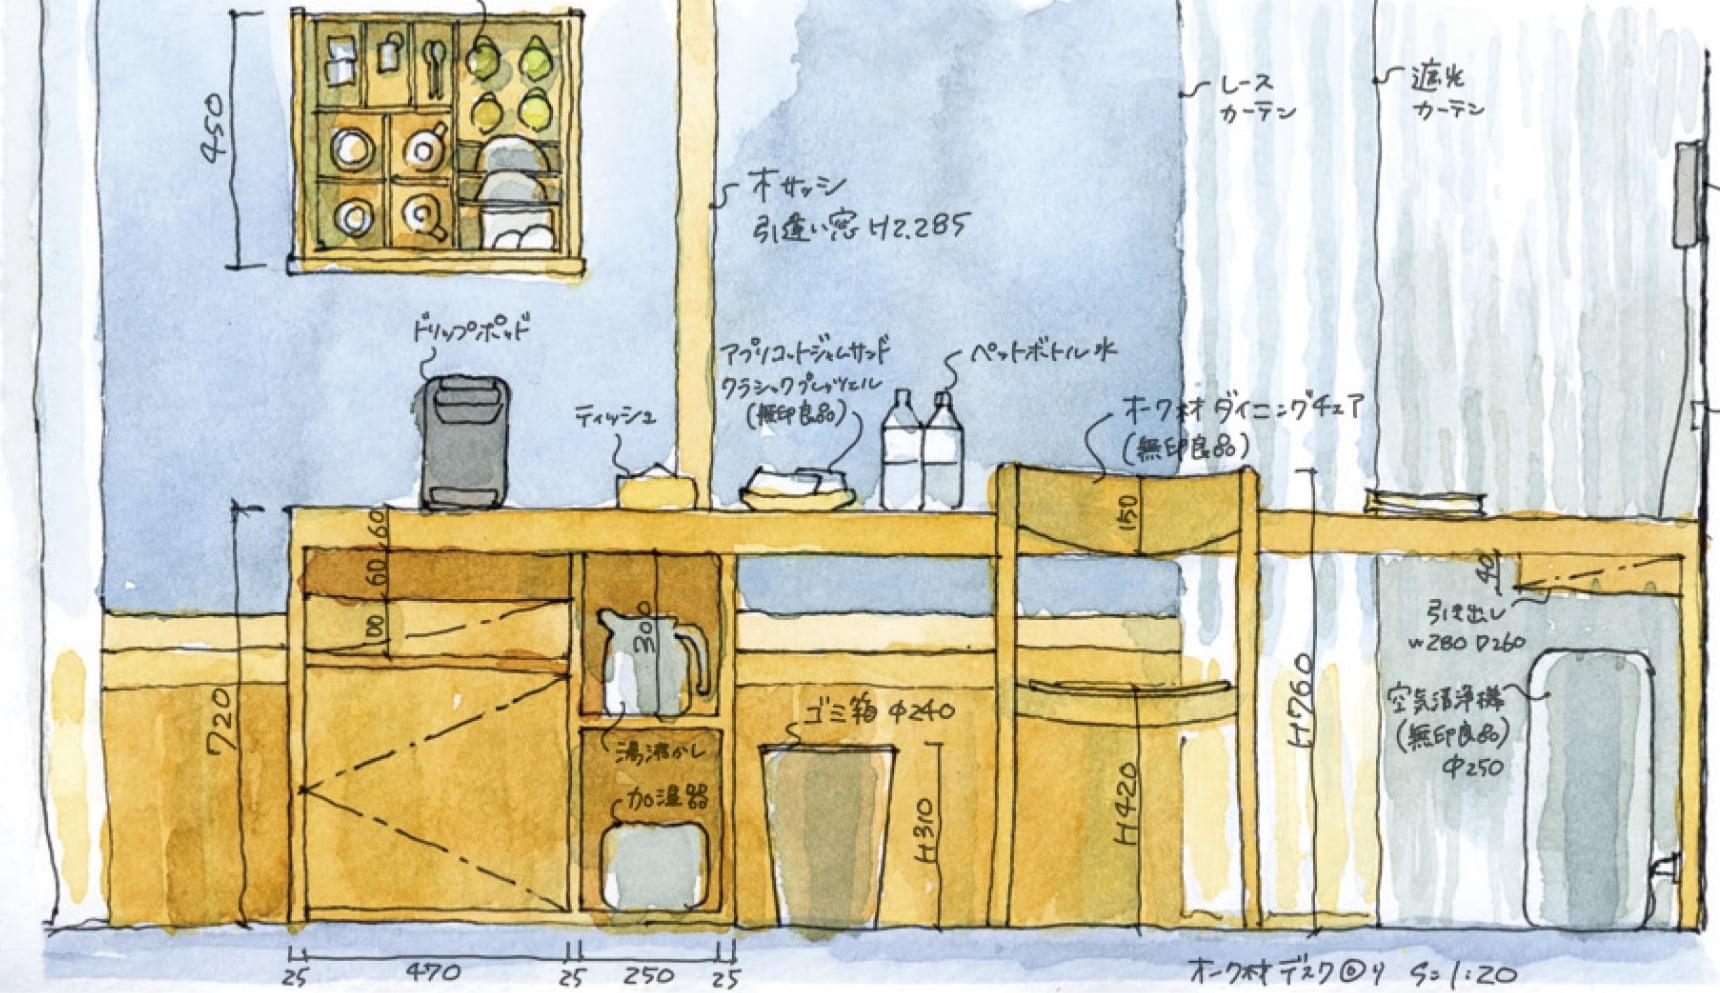 450
レース
カーテン
遮光
カーテン
木サッシ
引違い窓 H2.285
ドリップポッド
ティッシュ
アプリコットジャムサンド
クラシックプレッツェル
(無印良品)
ペットボトル水
オーク材 ダイニングチェア
(無印良品)
150
60
60
300
40
引き出し
w280 D260
720
H760
空気清浄機
(無印良品)
Φ250
ゴミ箱 Φ240
湯沸かし
加湿器
H310
H420
25
470
25
250
25
オーク材デスク◎リ S=1:20